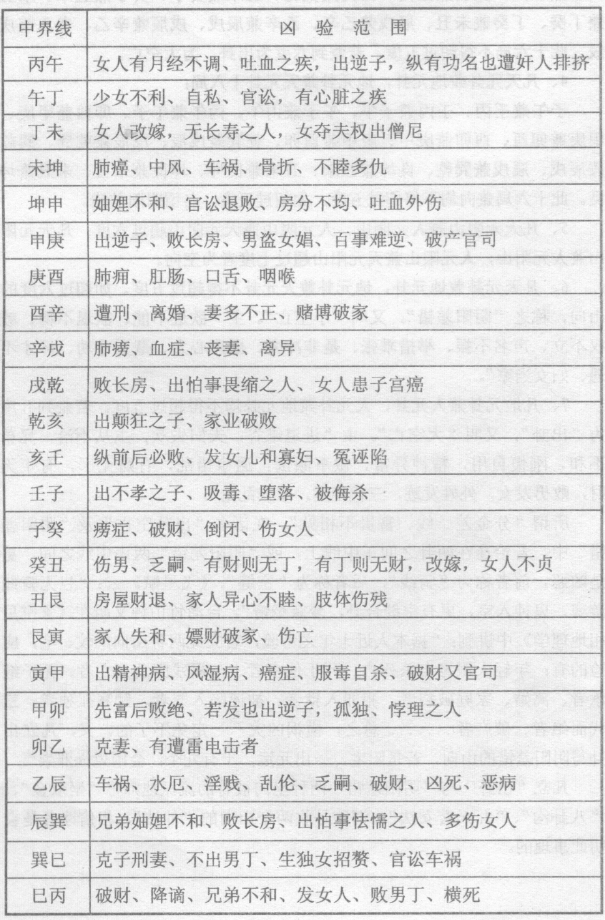 中界线 凶验范围
丙午 女人有月经不调、吐血之疾，出逆子，纵有功名也遭奸人排挤
午丁 少女不利、自私、官讼、有心脏之疾
丁未 女人改嫁，无长寿之人，女夺夫权出僧尼
未坤 肺癌、中风、车祸、骨折、不睦多仇
坤申 妯娌不和、官讼退败、房分不均、吐血外伤
申庚 出逆子、败长房、男盗女娼、百事难逆、破产官司
庚酉 肺痨、肛肠、口舌、咽喉
酉辛 遭刑、离婚、妻多不正、赌博破家
辛戌 肺痨、血症、丧妻、离异
戌乾 败长房、出怕事畏缩之人、女人患子宫癌
乾亥 出颠狂之子、家业破败
亥壬 纵前后必败、发女儿和寡妇、冤诬陷
壬子 出不孝之子、吸毒、堕落、被侮杀
子癸 痨症、破财、倒闭、伤女人
癸丑 伤男、乏嗣、有财则无丁，有丁则无财，改嫁，女人不贞
丑艮 房屋财退、家人异心不睦、肢体伤残
艮寅 家人失和、嫖财破家、伤亡
寅甲 出精神病、风湿病、癌症、服毒自杀、破财又官司
甲卯 先富后败绝、若发也出逆子，孤独、悖理之人
卯乙 克妻、有遭雷电击者
乙辰 车祸、水厄、淫贱、乱伦、乏嗣、破财、凶死、恶病
辰巽 兄弟妯娌不和、败长房、出怕事怯懦之人、多伤女人
巽巳 克子刑妻、不出男丁、生独女招赘、官讼车祸
巳丙 破财、降谪、兄弟不和、发女人、败男丁、横死